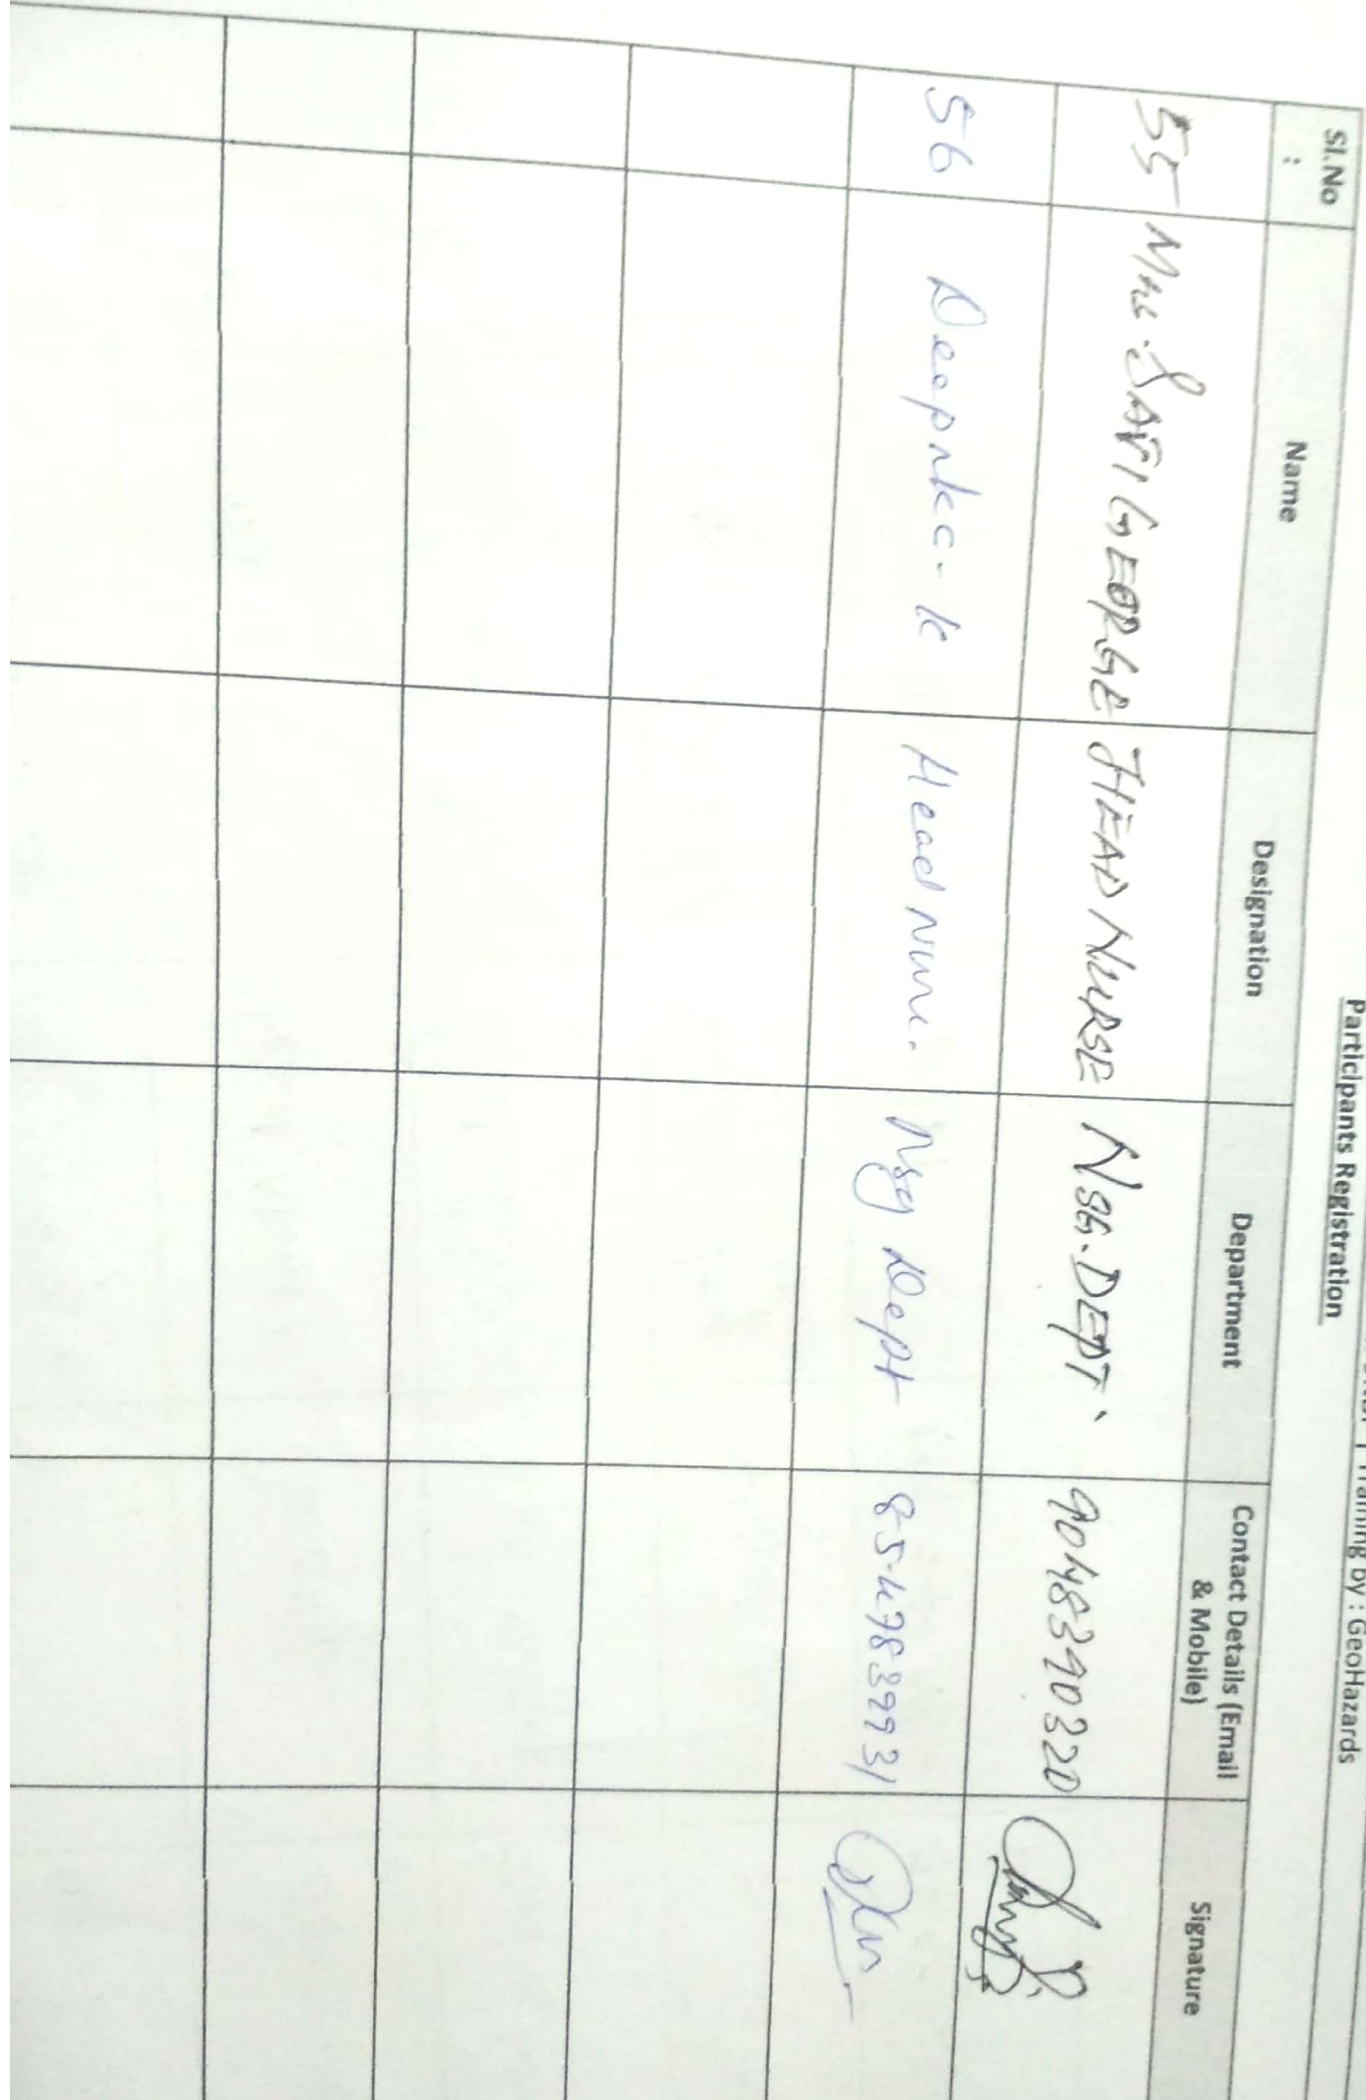 Training by : GeoHazards
Participants Registration
Sl.No : Name Designation Department Contact Details (Email & Mobile) Signature
55 Mrs. GEORGE HEAD NURSE NSG. DEPT. 9048390320
56 k Head Nurse. Nsg Dept